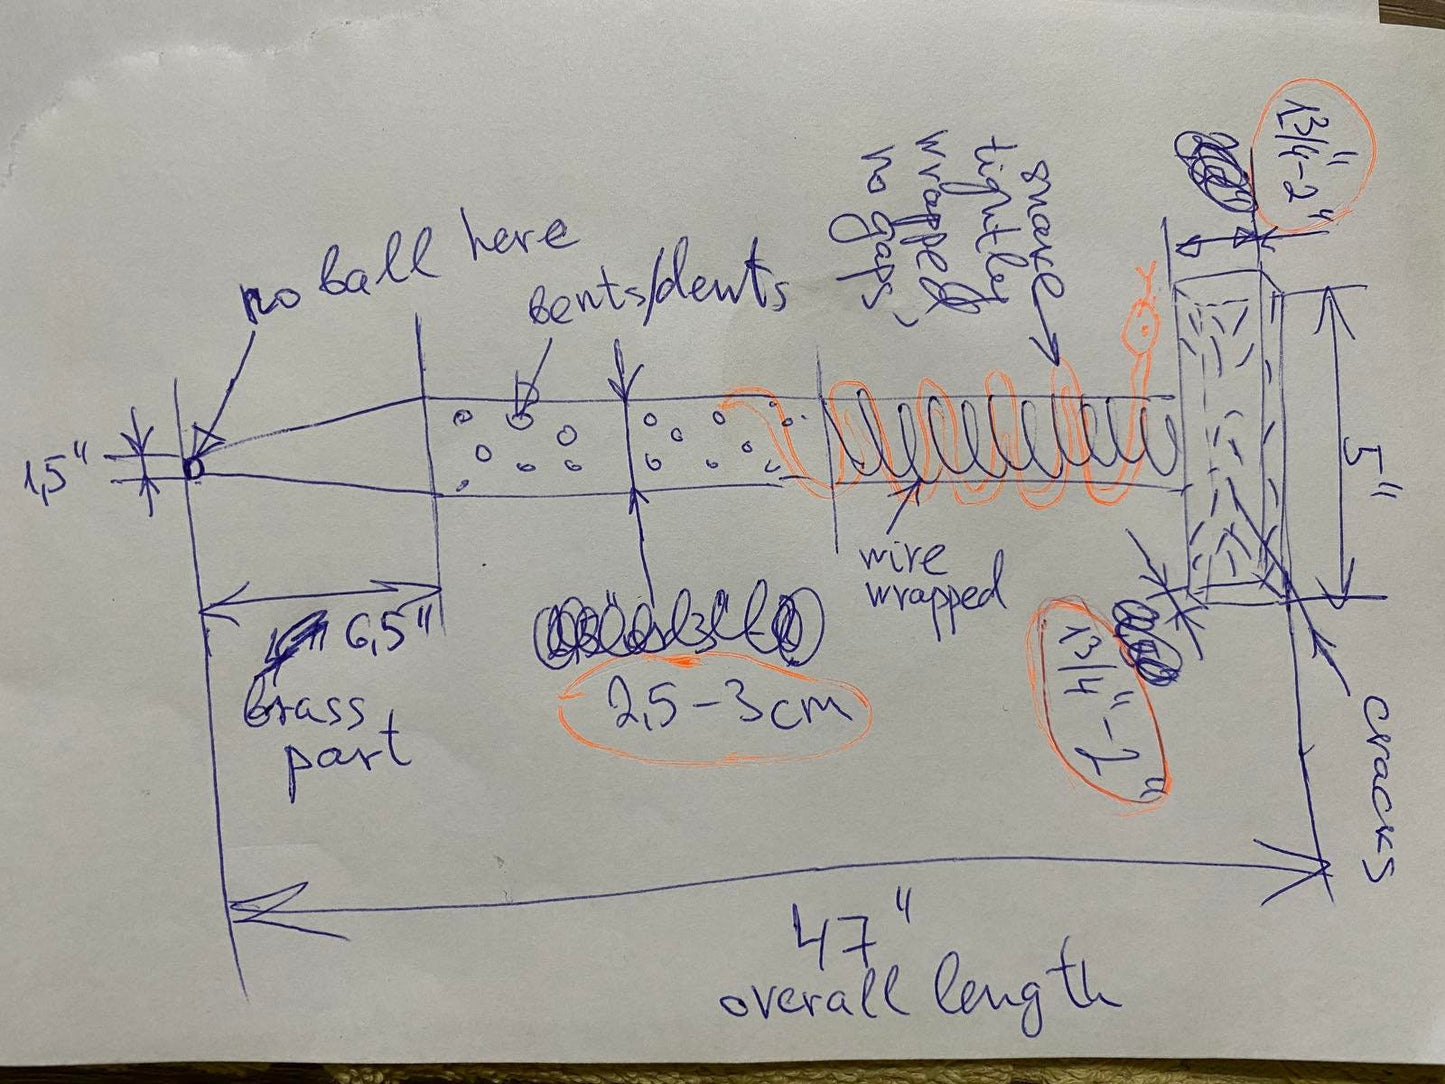 no ball here
bents/dents
snake
tightly
wrapped
no gaps
1 3/4"-2"
1,5"
5"
wire
wrapped
6,5"
brass
part
2,5-3cm
1 3/4"-2"
cracks
47"
overall length